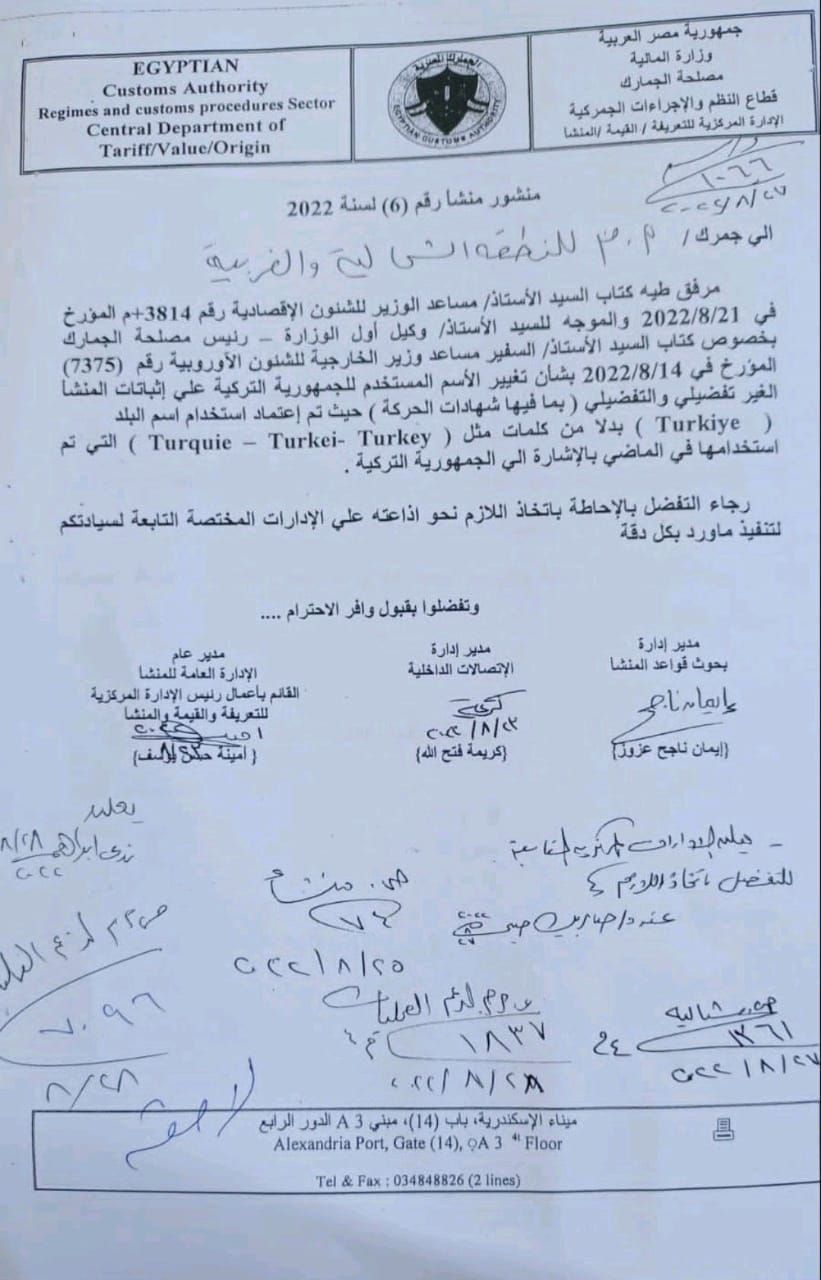 EGYPTIAN
Customs Authority
Regimes and customs procedures Sector
Central Department of
Tariff/Value/Origin
الجمارك المصرية
EGYPTIAN CUSTOMS AUTHORITY
جمهورية مصر العربية
وزارة المالية
مصلحة الجمارك
قطاع النظم والإجراءات الجمركية
الإدارة المركزية للتعريفة / القيمة /المنشأ
١٠٦٦
٢٠٢٢/٨/٢٧
منشور منشأ رقم (6) لسنة 2022
الي جمرك / م.م للمنطقه الشمالية والغربية
مرفق طيه كتاب السيد الأستاذ/ مساعد الوزير للشئون الإقصادية رقم 3814+م المؤرخ
في 2022/8/21 والموجه للسيد الأستاذ/ وكيل أول الوزارة – رئيس مصلحة الجمارك
بخصوص كتاب السيد الأستاذ/ السفير مساعد وزير الخارجية للشئون الأوروبية رقم (7375)
المؤرخ في 2022/8/14 بشأن تغيير الأسم المستخدم للجمهورية التركية علي إثباتات المنشأ
الغير تفضيلي والتفضيلي ( بما فيها شهادات الحركة ) حيث تم إعتماد استخدام اسم البلد
( Turkiye ) بدلا من كلمات مثل ( Turquie – Turkei- Turkey ) التي تم
استخدامها في الماضي بالإشارة الي الجمهورية التركية .
رجاء التفضل بالإحاطة باتخاذ اللازم نحو اذاعته علي الإدارات المختصة التابعة لسيادتكم
لتنفيذ ماورد بكل دقة
وتفضلوا بقبول وافر الاحترام ....
مدير إدارة
بحوث قواعد المنشأ
إيمان ناجح
{إيمان ناجح عزوز}
مدير إدارة
الإتصالات الداخلية
كريمة
٢٠٢٢/٨/٢٣
{كريمة فتح الله}
مدير عام
الإدارة العامة للمنشأ
القائم بأعمال رئيس الإدارة المركزية
للتعريفة والقيمة والمنشأ
{ امينة حسن يوسف}
للتفضل باتخاذ اللازم
ص. منشأ
٧٤
٢٠٢٢/٨/٢٥
١٣٦١
٢٠٢٢/٨/٢٧
١٨٣٧
٢٠٢٢/٨/٢٨
٧٠٩٦
٨/٢٨
ميناء الإسكندرية، باب (14)، مبني A 3 الدور الرابع
Alexandria Port, Gate (14), A 3 4t Floor
Tel & Fax : 034848826 (2 lines)